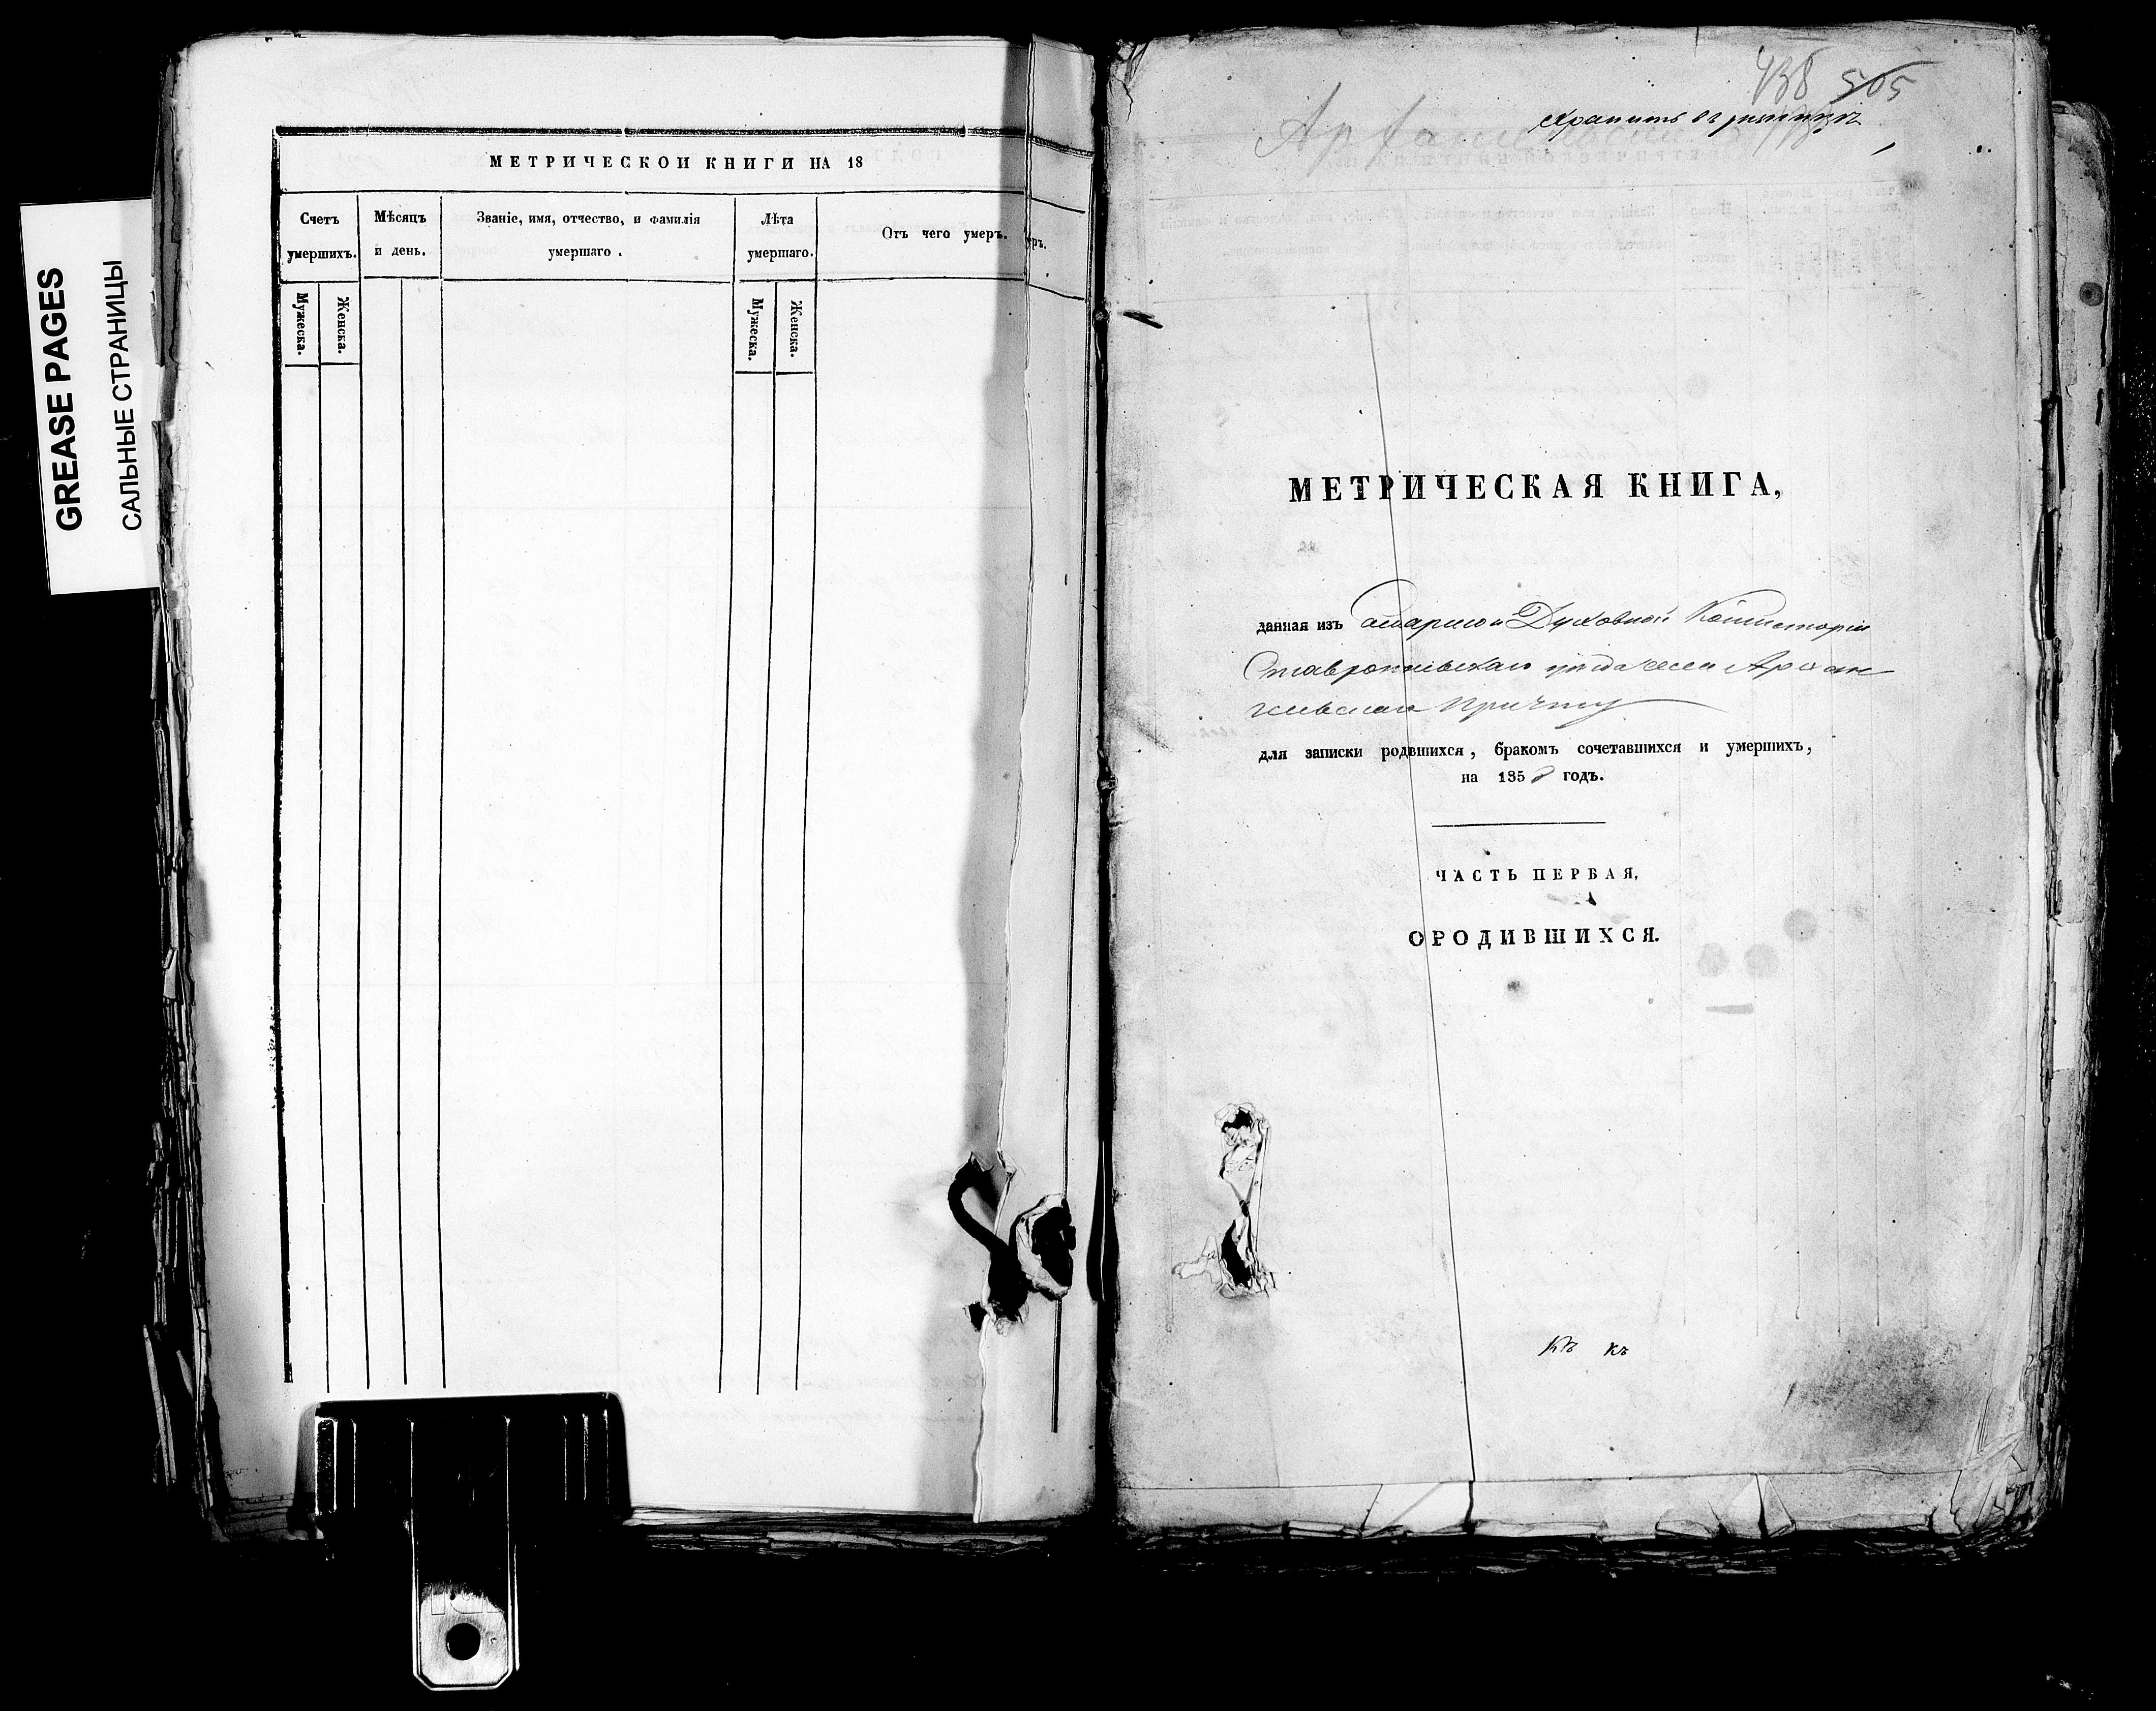 GREASE PAGES
САЛЬНЫЕ СТРАНИЦЫ
МЕТРИЧЕСКОИ КНИГИ НА 18
Счетъ умершихъ.
Мѣсяцъ и день.
Званіе, имя, отчество, и фамилія умершаго .
Лѣта умершаго.
Отъ чего умеръ.
Мужеска.
Женска.
Мужеска.
Женска.
438 505
Хранить въ
МЕТРИЧЕСКАЯ КНИГА,
данная изъ Самарской Духовной Консисторіи
Ставропольскаго уѣзда села Архан
гельскаго Причту
для записки родвшихся, бракомъ сочетавшихся и умершихъ,
на 1858 годъ.
ЧАСТЬ ПЕРВАЯ,
ОРОДИВШИХСЯ.
къ къ